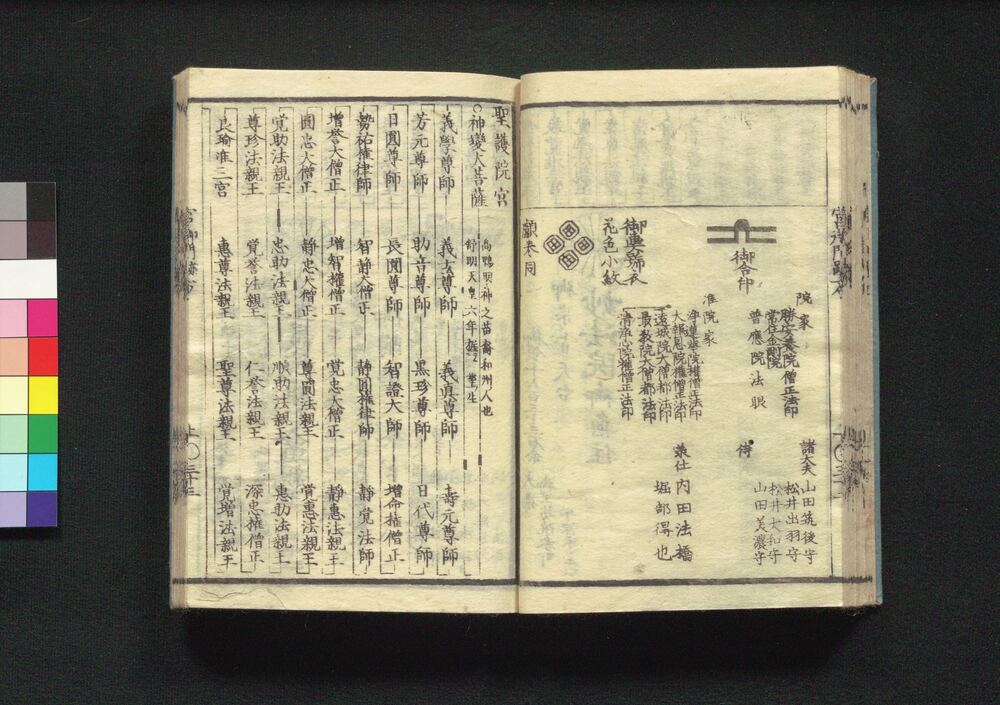 院家
勝安養院僧正法印
常住金剛院
普應院法眼
諸大夫
山田筑後守
松井出羽守
松井大和守
山田美濃守
侍
御合印
准院家
浄蓮華院権僧正法印
大報恩院権僧正法印
遠城院大僧都法印
最教院大僧都法印
清浄心院権僧正法印
承仕
内田法橋
堀部得也
御輿舁衣
花色小紋
額参同
聖護院宮
○神變大菩薩
高鴨明神之苗裔和州人也
舒明天皇六年
義學尊師 義玄尊師 義真尊師 壽元尊師
芳元尊師 助音尊師 黒珍尊師 日代尊師
日圓尊師 長圓尊師 智證大師 増命権僧正
勢祐権律師 智静大僧正 静圓権律師 静覚法師
増誉大僧正 増智権僧正 覚忠大僧正 静恵法親王
圓忠大僧正 静忠大僧正 尊圓法親王 覚恵法親王
覚助法親王 忠助法親王 順助法親王 恵助法親王
尊珍法親王 覚誉法親王 仁誉法親王 深忠権僧正
良瑜准三宮 恵尊法親王 聖尊法親王 覚増法親王